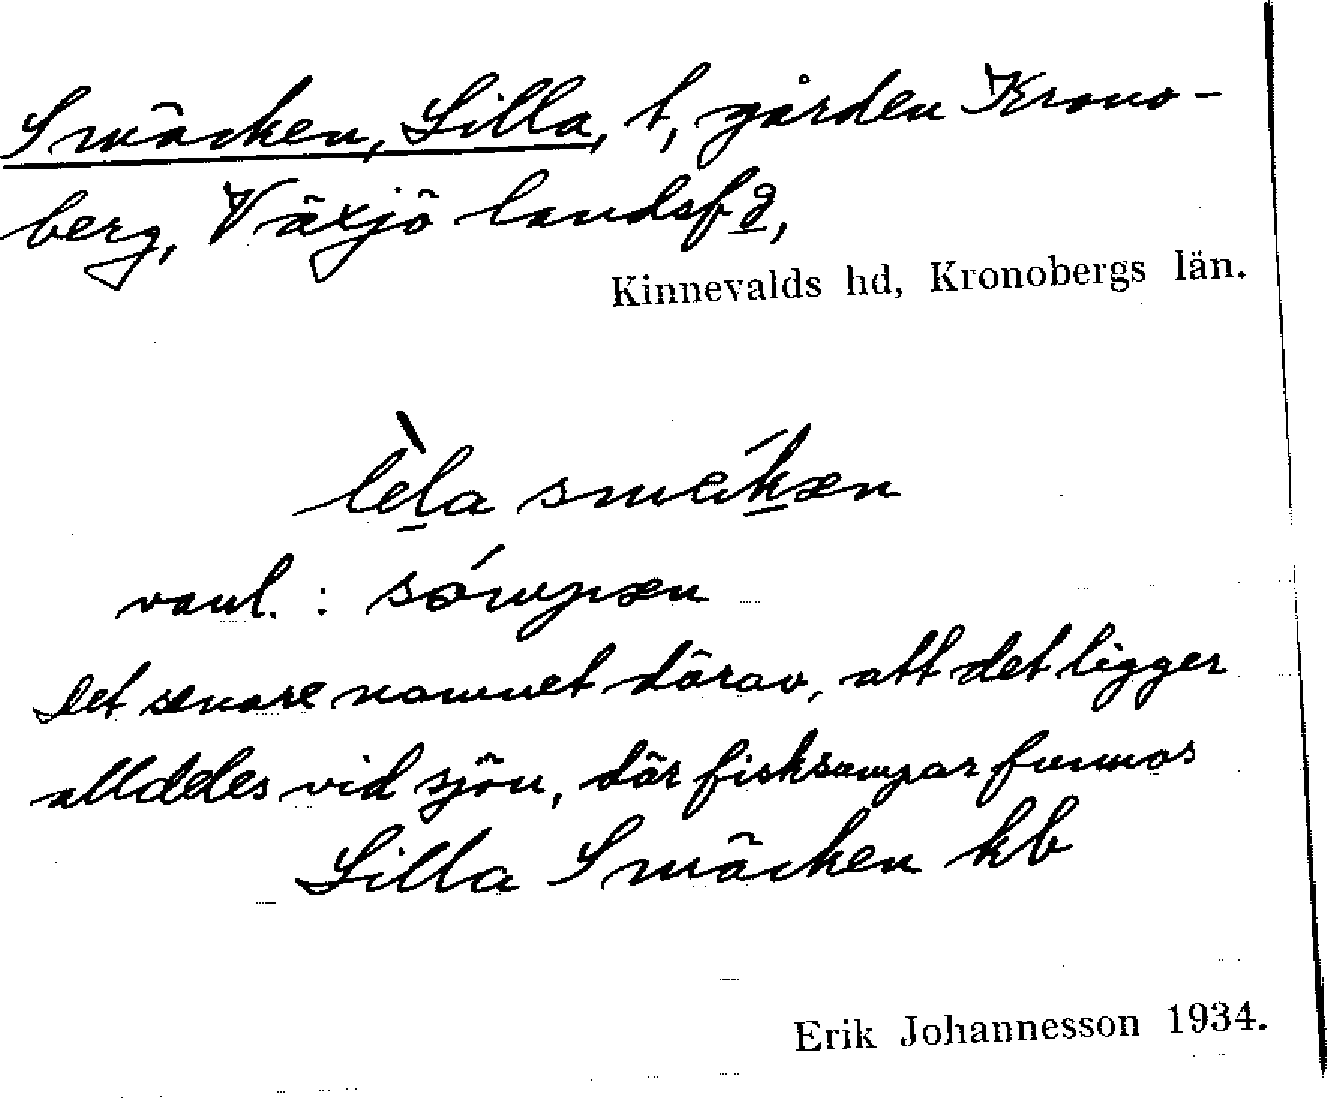 Smäcken, Lilla, t, gården Krono-
berg, Växjö landsfg,
Kinnevalds hd, Kronobergs län.
lèla smékæn
vanl. : sómpæn
Det senare namnet därav, att det ligger
alldeles vid sjön, där fisksumpar funnos
Lilla Smäcken kb
Erik Johannesson 1934.